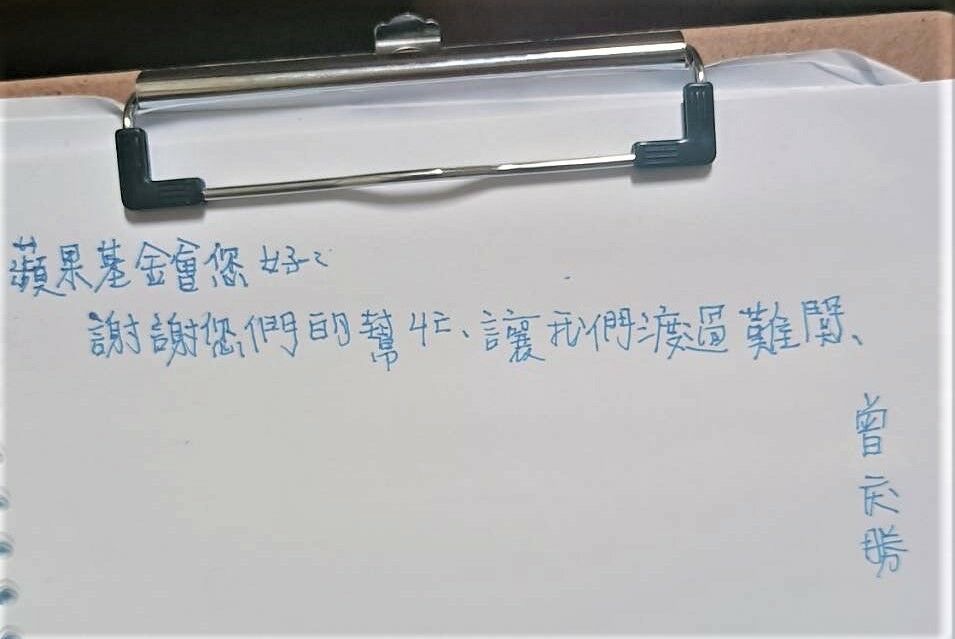 蘋果基金會您好:
謝謝您們的幫忙、讓我們渡過難關、
曾庆勝